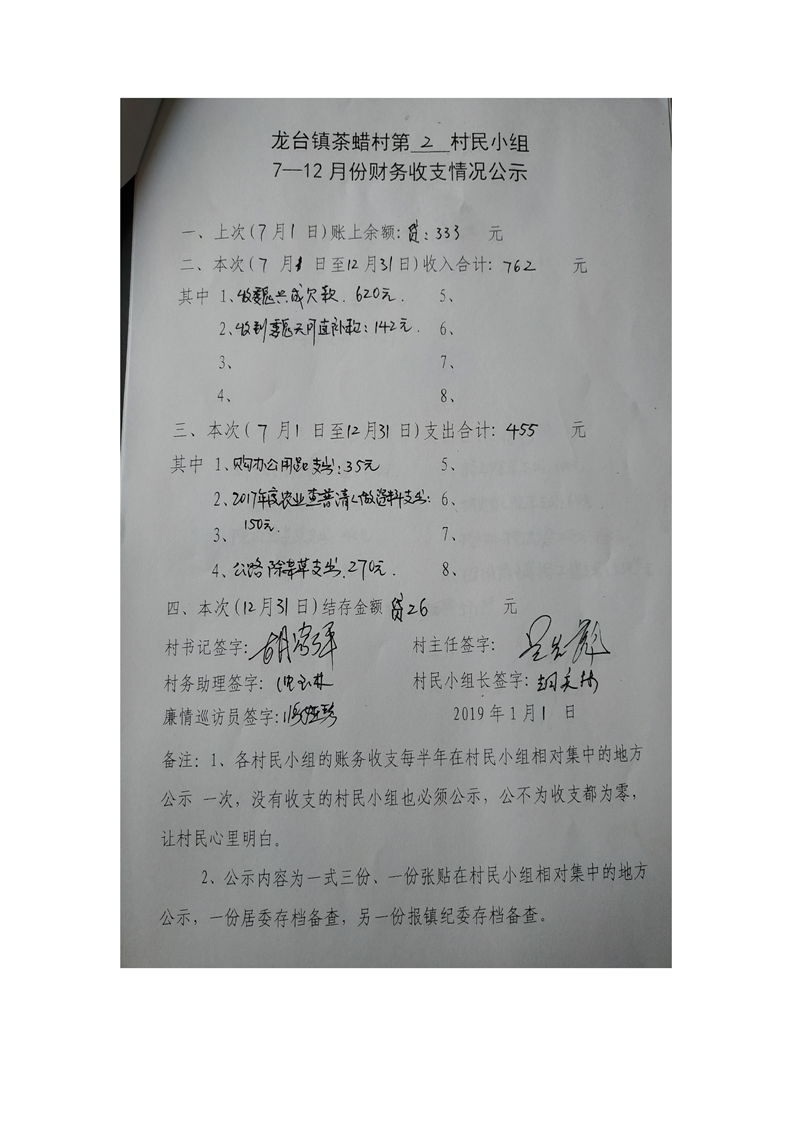 龙台镇茶蜡村第 2 村民小组
7—12月份财务收支情况公示
一、上次(7月1日)账上余额:贷:333 元
二、本次(7月1日至12月31日)收入合计:762 元
其中 1、收魏兴成欠款.620元. 5、
2、收到魏天可直补款:142元. 6、
3、 7、
4、 8、
三、本次(7月1日至12月31日)支出合计:455 元
其中 1、购办公用品支出:35元 5、
2、2017年度农业查普清人做资料支出: 6、
3、150元. 7、
4、公路除毒草支出.270元. 8、
四、本次(12月31日)结存金额 贷26 元
村书记签字: 村主任签字:
村务助理签字: 村民小组长签字:
廉情巡访员签字: 2019年1月1日
备注:1、各村民小组的账务收支每半年在村民小组相对集中的地方
公示 一次,没有收支的村民小组也必须公示,公不为收支都为零,
让村民心里明白。
2、公示内容为一式三份、一份张贴在村民小组相对集中的地方
公示,一份居委存档备查,另一份报镇纪委存档备查。